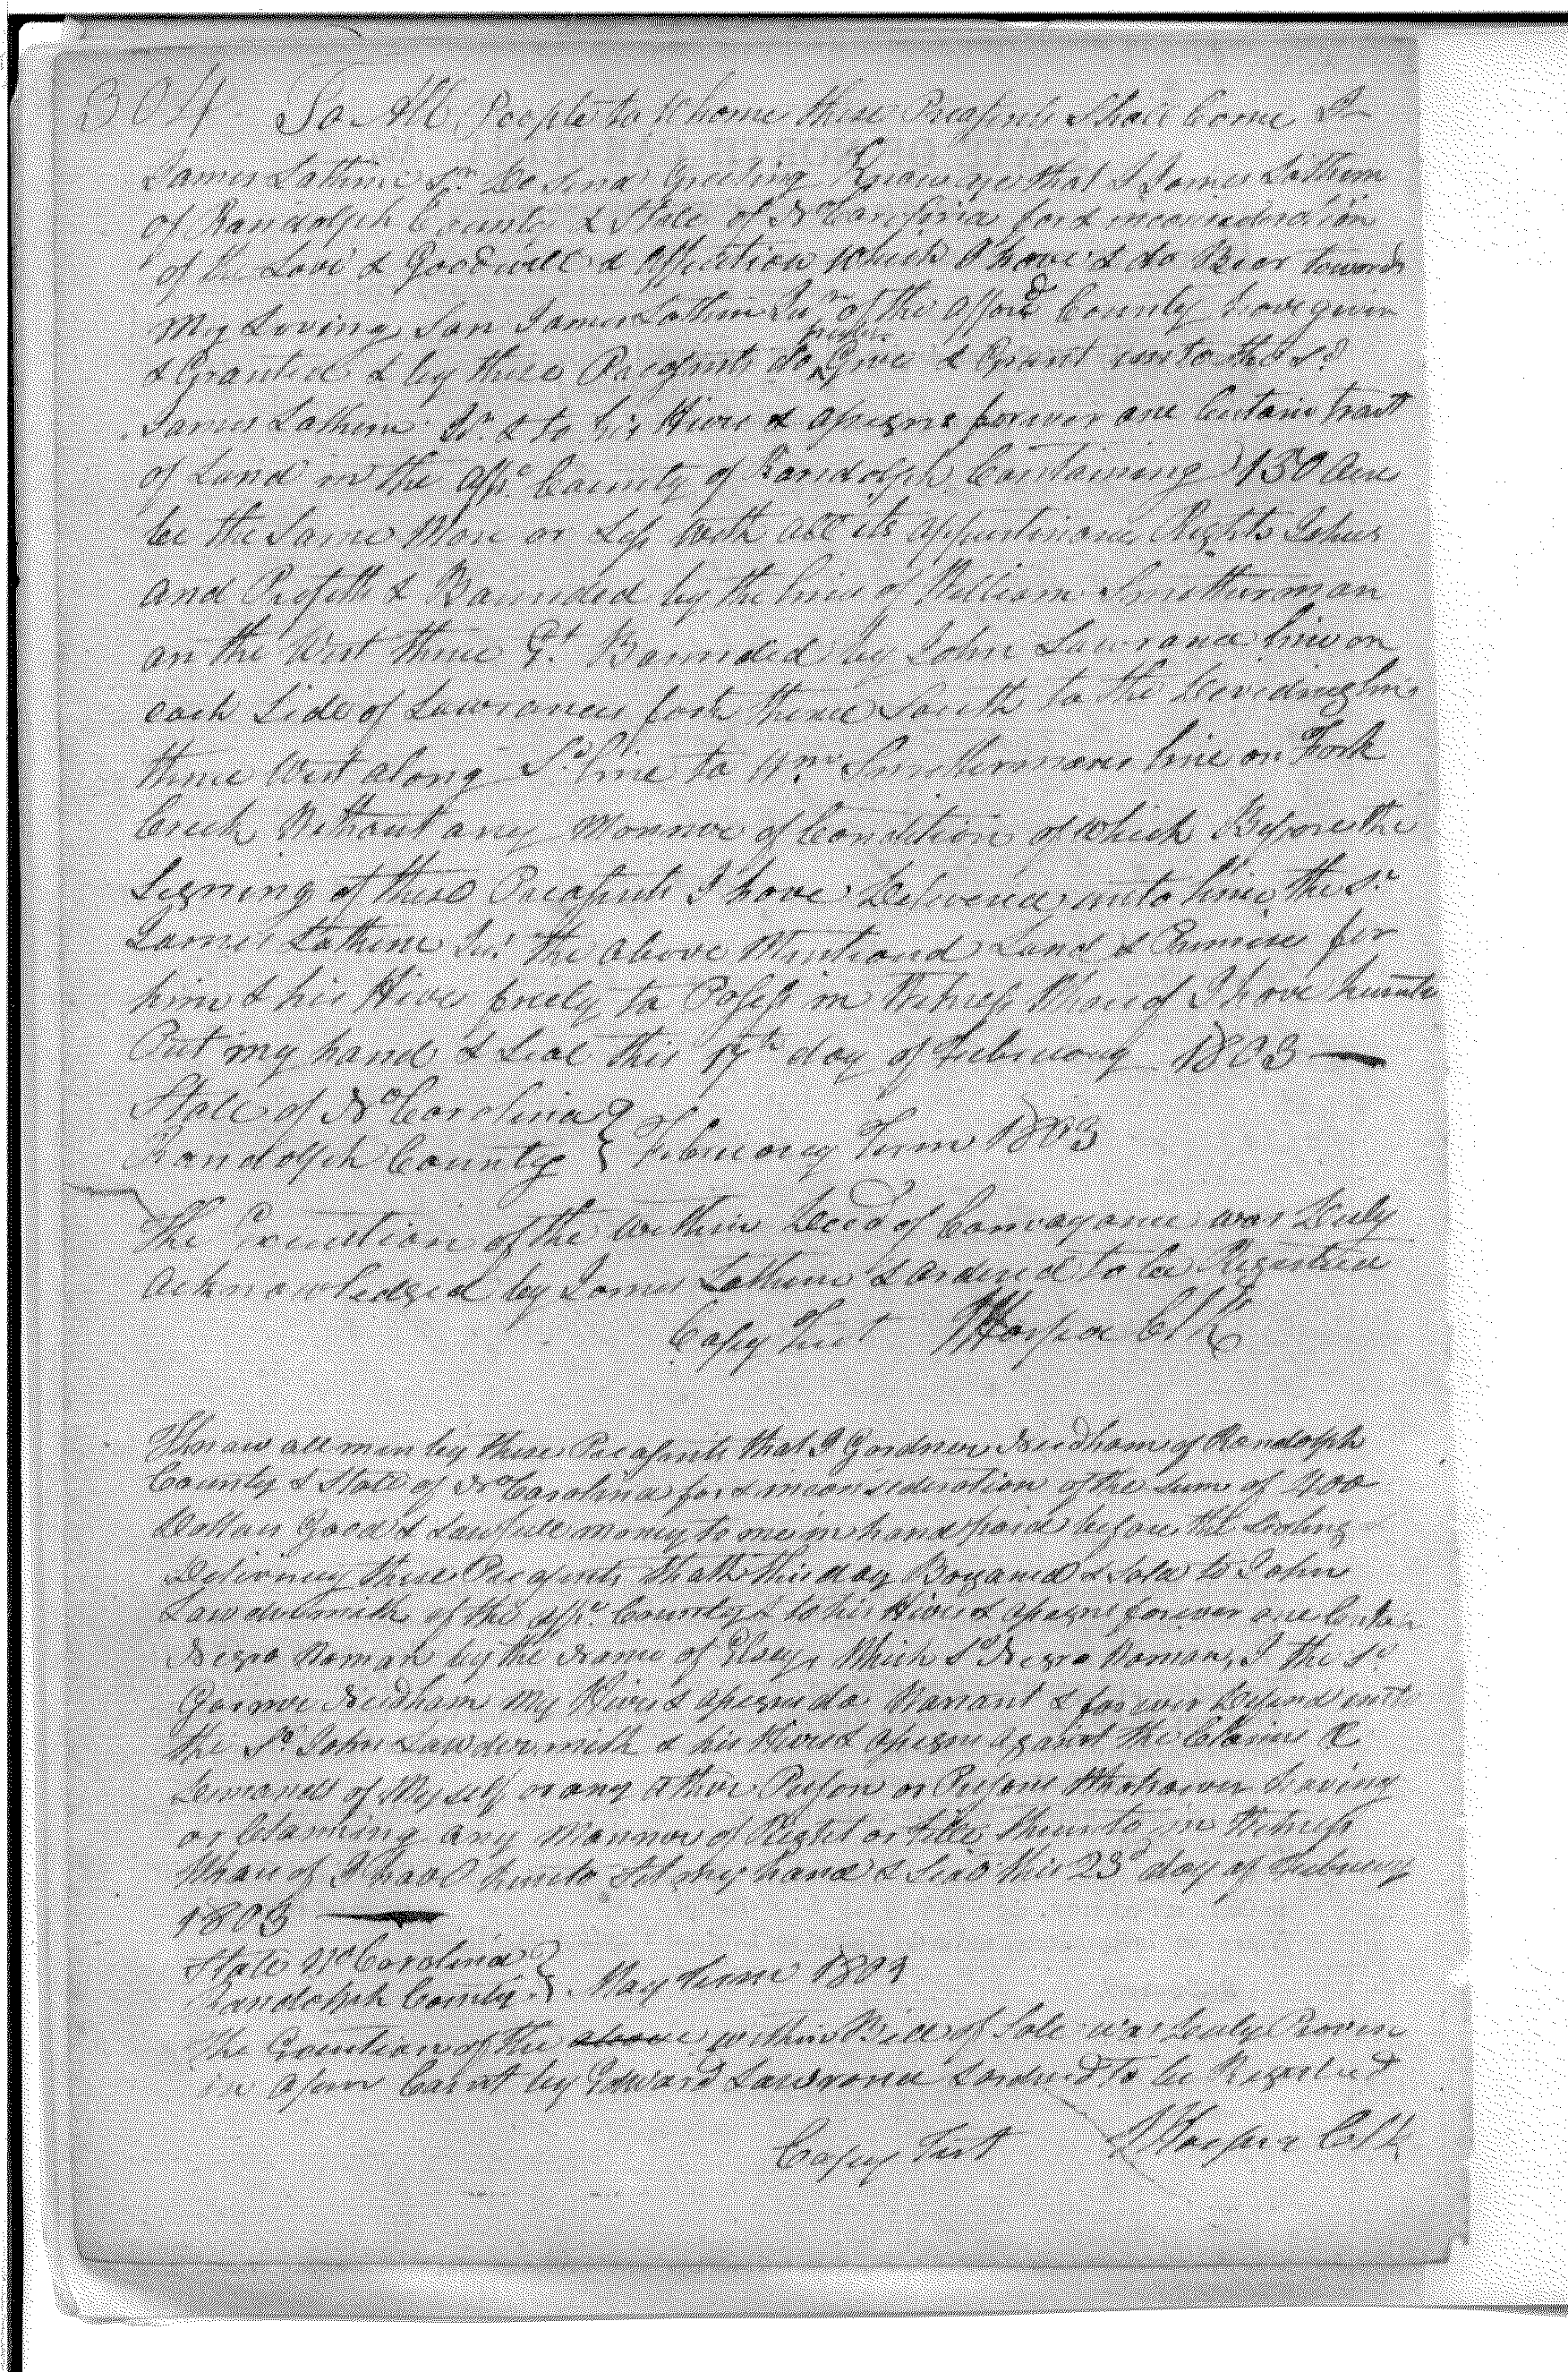 304 To All People to Whome these Preasents Shall Come I
James Lathem Sr. Do Send Greeting Know ye that I James Lathem
of Randolph County & State of No Carolina for & inconsideration
of the Love & Goodwill & affection which I have & do Bear towards
My Loving Son James Lathem Jur. of the afforsd County have given
& Granted & by these Preasents do freely Give & Grant unto the sd
James Lathem Jr. & to his Hires & assigns forever one Certain tract
of Land in the affs. County of Randolph Containing 150 Acres
be the Same More or Less with all its appurtinances Rights
and Profitts & Bounded by the lines of William Smitherman
on the West thence Et. Bounded by John Lawrance line on
each Side of Lawrances fork thence South to the Devideing line
thence West along Sd line to Wm. Smithermans line on Fork
Creek Without any Mannor of Condition of which Before the
Signing of these Preasents I have Delivered unto him the sd
James Lathem Jur. the above Mentiond Land & Premises for
him & his Hires freely to Posess in Witness Whereof I have hereunto
Put my hand & Seal this 17th day of February 1803
State of No Carolina }
Randolph County } February Term 1803
The Execution of the within Deed of Convayance was Duly
acknowledged by James Lathem & ordered to be Registered
Copy Test JHarper Clk
Know all men by these Preasents that I Gardner Needham of Randolph
County & State of No Carolina for & inconsideration of the Sum of 400
Dollars Good & Lawfull money to me in hand paid before the Sealing
Delivery these Preasents Hath this day Bargained & Sold to John
Lawdermith of the affs. County & to his Hires & assigns forever one Certain
Negro Woman by the Name of which sd Negro Woman, I the sd
Garnner Needham My Hires & assigns do Warrant & forever Defend unto
the sd John Lawdermith & his Hires & assigns against the Claims &
Demands of My self or any other Person or Persons Whatsoever having
or Claiming any Mannor of Right or title thereunto in Witness
Whareof I have hereunto Set my hand & Seal this 23d day of February
1803
State No Carolina }
Randolph County } May Term 1804
The Execution of the above within Bill of Sale was Duly Proven
in Open Court by Edward Lawrance & ordred to be Registred
Copy Test JHarper Clk